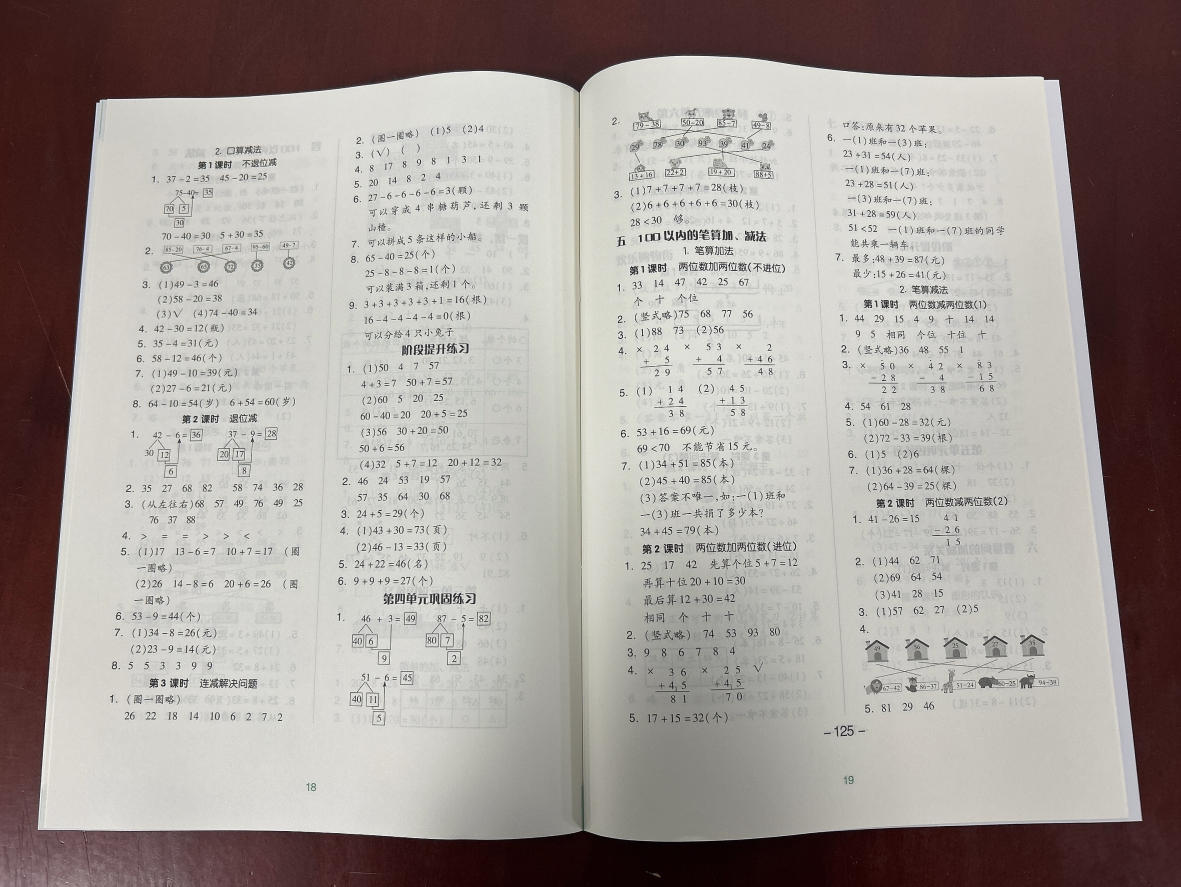 2. 口算减法
第1课时 不退位减
1. 37－2＝35 45－20＝25
75－40＝35
70 5
30
70－40＝30 5＋30＝35
2. 85－20 76－4 67－4 95－60 49－7
63 65 72 35 42
3. (1)49－3＝46
(2)58－20＝38
(3)√ (4)74－40＝34
4. 42－30＝12(瓶)
5. 35－4＝31(元)
6. 58－12＝46(个)
7. (1)49－10＝39(元)
(2)27－6＝21(元)
8. 64－10＝54(岁) 6＋54＝60(岁)
第2课时 退位减
1. 42－6＝36 37－9＝28
30 12 20 17
6 8
2. 35 27 68 82 58 74 36 28
3. (从左往右)68 57 49 76 49 25
76 37 88
4. ＞ ＝ ＝ ＞ ＞ ＜
5. (1)17 13－6＝7 10＋7＝17 (圈
一圈略)
(2)26 14－8＝6 20＋6＝26 (圈
一圈略)
6. 53－9＝44(个)
7. (1)34－8＝26(元)
(2)23－9＝14(元)
8. 5 5 3 3 9 9
第3课时 连减解决问题
1. (圈一圈略)
26 22 18 14 10 6 2 7 2
2. (圈一圈略) (1)5 (2)4
3. (√) ( )
4. 8 17 8 9 8 1 3 1
5. 20 14 8 2 4
6. 27－6－6－6－6＝3(颗)
可以穿成 4 串糖葫芦,还剩 3 颗
山楂。
7. 可以拼成5条这样的小船。
8. 65－40＝25(个)
25－8－8－8＝1(个)
可以装满3箱,还剩1个。
9. 3＋3＋3＋3＋3＋1＝16(根)
16－4－4－4－4＝0(根)
可以分给4只小兔子
阶段提升练习
1. (1)50 4 7 57
4＋3＝7 50＋7＝57
(2)60 5 20 25
60－40＝20 20＋5＝25
(3)56 30＋20＝50
50＋6＝56
(4)32 5＋7＝12 20＋12＝32
2. 46 24 53 19 57
57 35 64 30 68
3. 24＋5＝29(个)
4. (1)43＋30＝73(页)
(2)46－13＝33(页)
5. 24＋22＝46(名)
6. 9＋9＋9＝27(个)
第四单元巩固练习
1. 46＋3＝49 87－5＝82
40 6 80 7
9 2
51－6＝45
40 11
5
18
2. 79－38 50－20 85－7 49－8
29 78 30 93 39 41 24
13＋16 22＋2 19＋20 88＋5
3. (1)7＋7＋7＋7＝28(枝)
(2)6＋6＋6＋6＋6＝30(枝)
28＜30 够。
五 100以内的笔算加、减法
1. 笔算加法
第1课时 两位数加两位数(不进位)
1. 33 14 47 42 25 67
个 十 个位
2. (竖式略)75 68 77 56
3. (1)88 73 (2)56
4. × 2 4 × 5 3 × 2
＋ 5 ＋ 4 ＋4 6
2 9 5 7 4 8
5. (1) 1 4 (2) 4 5
＋2 4 ＋1 3
3 8 5 8
6. 53＋16＝69(元)
69＜70 不能节省15元。
7. (1)34＋51＝85(本)
(2)45＋40＝85(本)
(3)答案不唯一,如:一(1)班和
一(3)班一共捐了多少本?
34＋45＝79(本)
第2课时 两位数加两位数(进位)
1. 25 17 42 先算个位5＋7＝12
再算十位20＋10＝30
最后算12＋30＝42
相同 个 十 十
2. (竖式略) 74 53 93 80
3. 9 8 6 7 8 4
4. × 3 6 × 2 5 √
＋4 5 ＋4 5
8 1 7 0
5. 17＋15＝32(个)
口答:原来有32个苹果。
6. 一(1)班和一(3)班:
23＋31＝54(人)
一(1)班和一(7)班:
23＋28＝51(人)
一(3)班和一(7)班:
31＋28＝59(人)
51＜52 一(1)班和一(7)班的同学
能共乘一辆车。
7. 最多:48＋39＝87(元)
最少:15＋26＝41(元)
2. 笔算减法
第1课时 两位数减两位数(1)
1. 44 29 15 4 9 十 14 14
9 5 相同 个位 十位 十
2. (竖式略)36 48 55 1
3. × 5 0 × 4 2 × 8 3
－2 8 － 4 －1 5
2 2 3 8 6 8
4. 54 61 28
5. (1)60－28＝32(元)
(2)72－33＝39(根)
6. (1)5 (2)6
7. (1)36＋28＝64(棵)
(2)64－39＝25(棵)
第2课时 两位数减两位数(2)
1. 41－26＝15 4 1
－2 6
1 5
2. (1)44 62 71
(2)69 64 54
(3)41 28 15
3. (1)57 62 27 (2)5
4.
49 56 25 27 35
67－42 86－37 51－24 60－25 94－38
5. 81 29 46
－125－
19